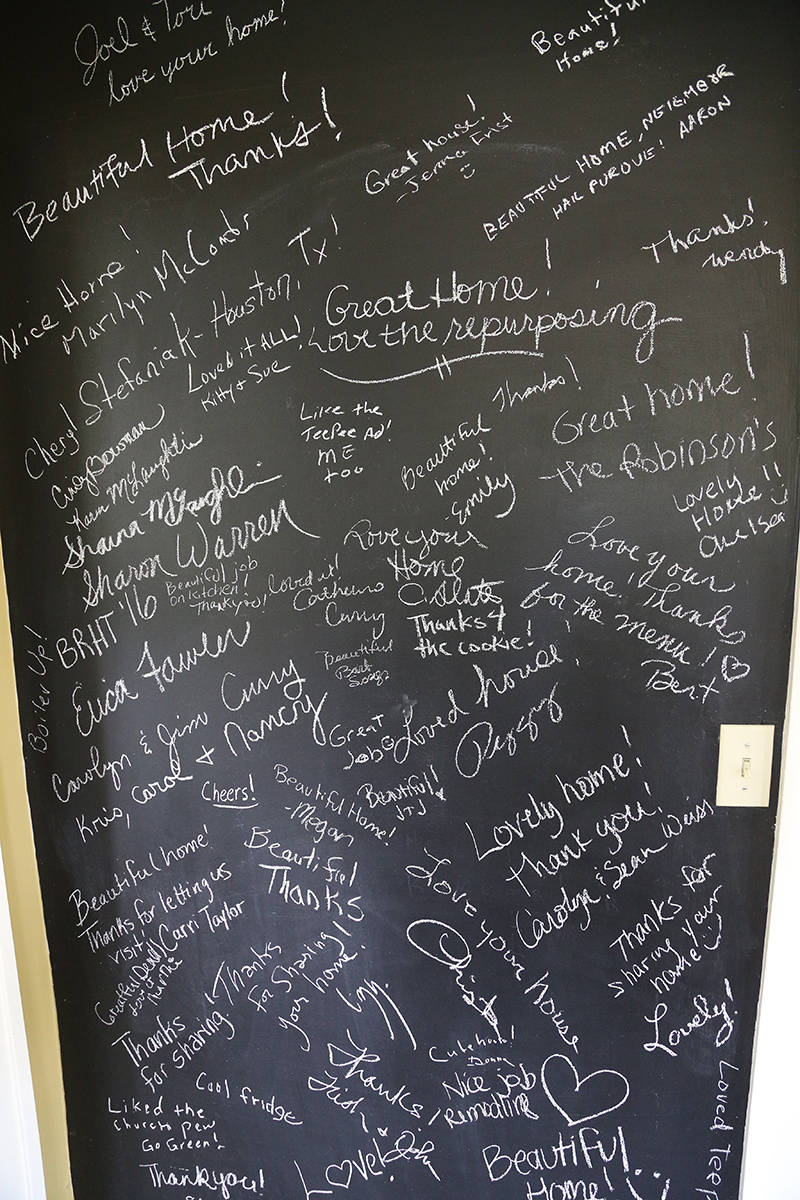 Joel & Tori
love your home!
Beautiful
Home!
Beautiful Home!
Thanks!
Great house!
- Jenna Frist
BEAUTIFUL HOME, NEIGHBOR
HAIL PURDUE! AARON
Thanks!
Wendy
Nice Home!
Marilyn McCombs
Cheryl Stefaniak - Houston, Tx!
Great Home!
Love the repurposing
Loved it ALL!
Kitty & Sue
Like the
TeePee Ad!
ME
too
Thanks!
Beautiful
home!
Emily
Great home!
the Robinson's
Lovely
Home!!
Chelsea
Cindy Bowman
Karen McLaughlin
Shauna McLaughlin
Sharon Warren
BRHT '16
Beautiful job
on kitchen!
Thank you!
Loved it!
Catherine
Curry
Love your
Home
Thanks 4
the cookie!
Love your
home! Thanks
for the menu!
Bert
Boiler Up!
Erica Fawler
Beautiful
Carolyn & Jim Curry
Kris, Carol & Nancy
Great
Job
Loved house!
Peggy
Cheers!
Beautiful Home!
- Megan
Beautiful!
Lovely home!
Thank you!
Carolyn & Sean Weiss
Beautiful home!
Thanks for letting us
visit! Carri Taylor
Beautiful
Thanks
Love your house
Thanks for
sharing your
home
Lovely!
Thanks
for Sharing
your home!
Thanks
for sharing
Cute house!
Donna
Nice job
Thanks!
Cool fridge
Liked the
church pew
Go Green!
Thank you!
Love!
Beautiful
Home!
Loved